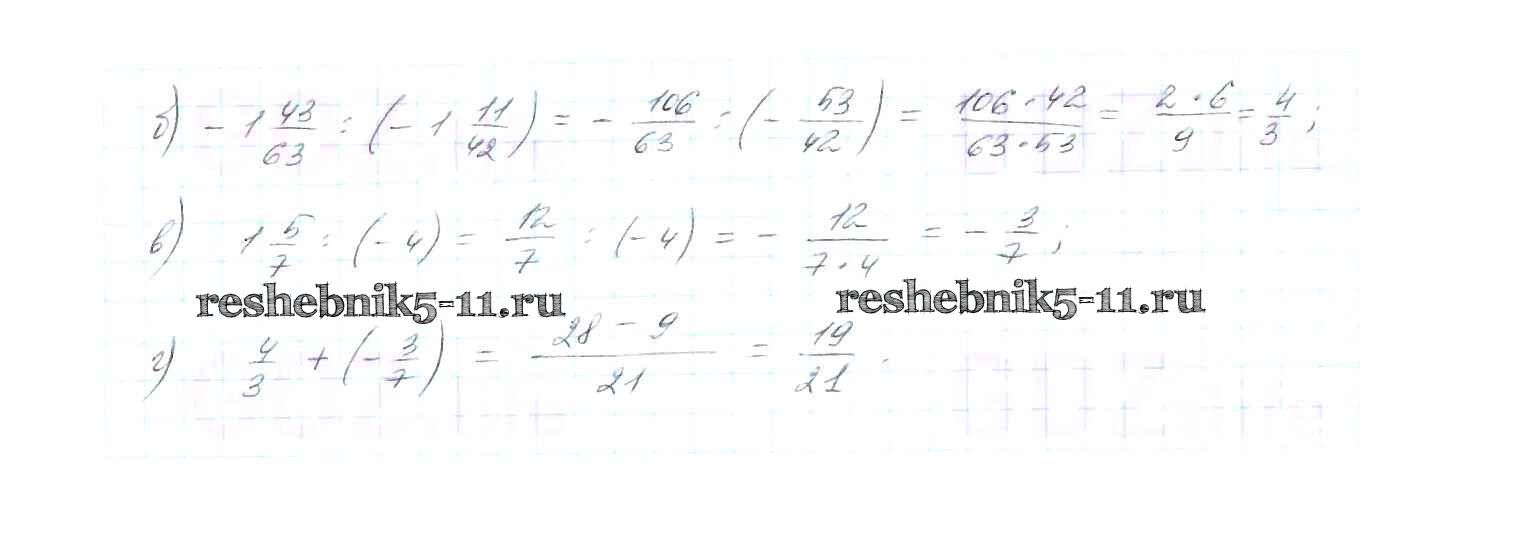 б) - 1 43/63 : (- 1 11/42) = - 106/63 : (- 53/42) = 106·42/63·53 = 2·6/9 = 4/3 ;
в) 1 5/7 : (- 4) = 12/7 : (- 4) = - 12/7·4 = - 3/7 ;
reshebnik5-11.ru reshebnik5-11.ru
г) 4/3 + (- 3/7) = 28 - 9/21 = 19/21 .